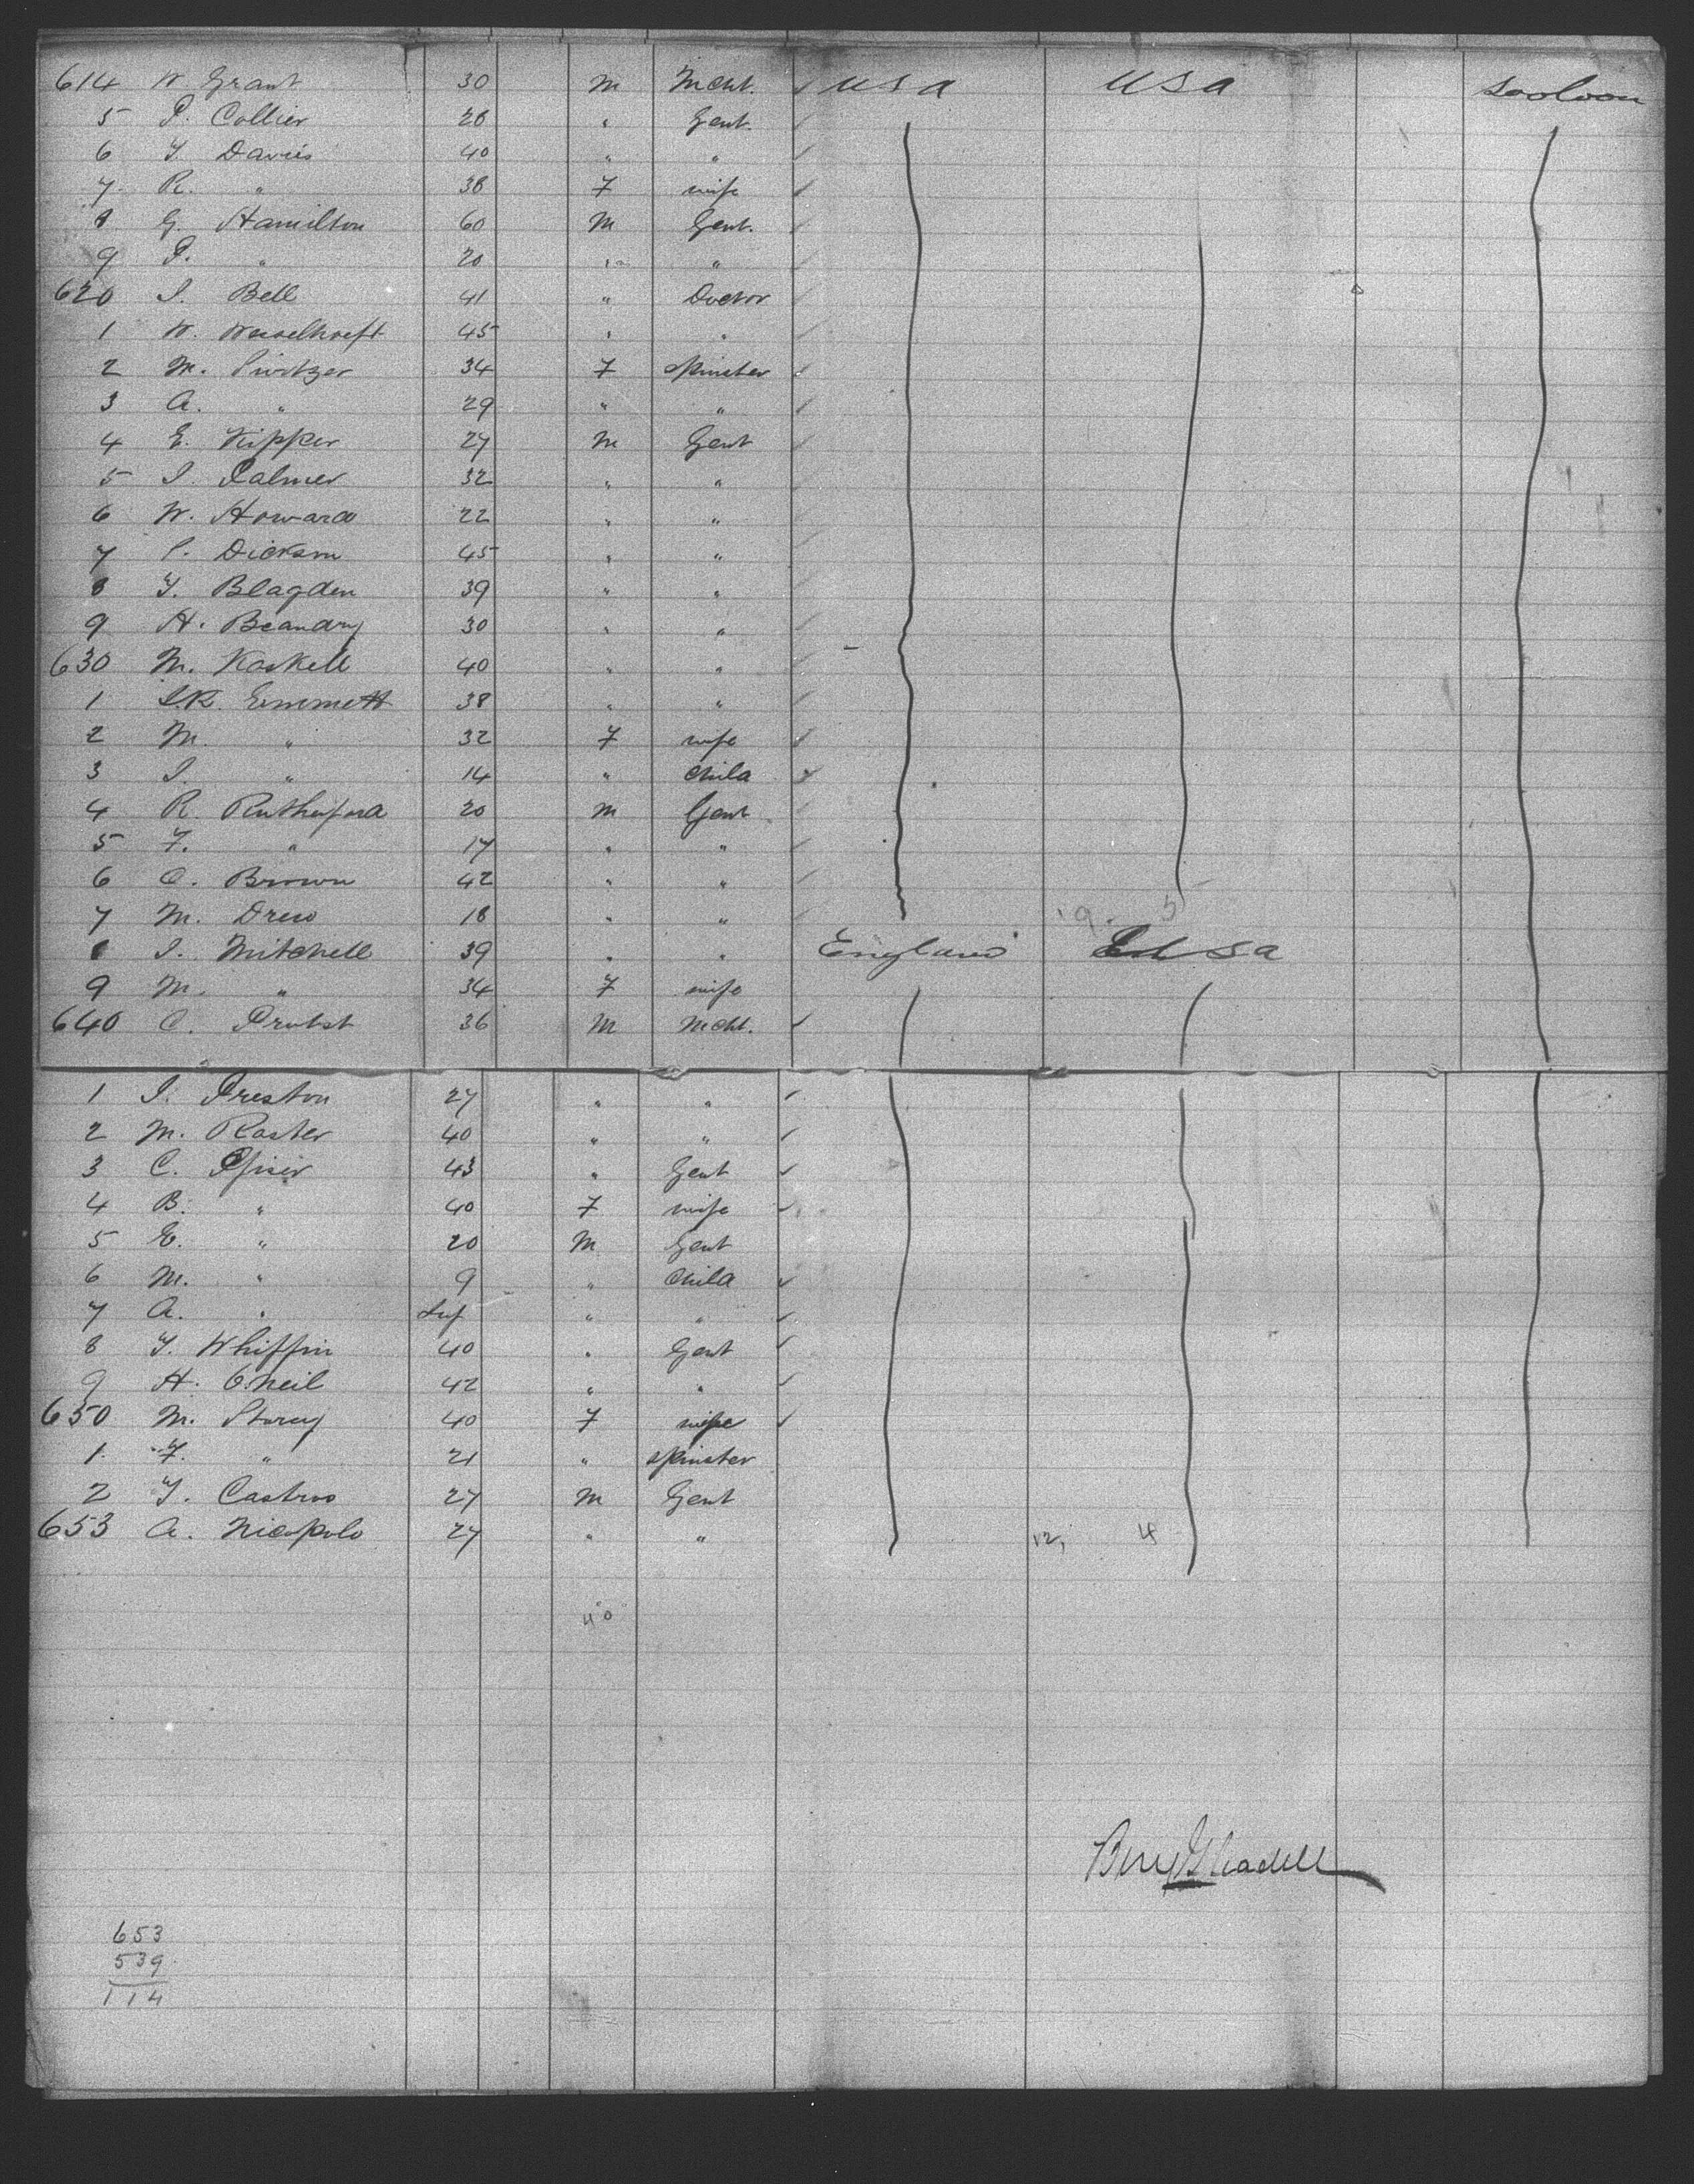 614 W Grant 30 m Mcht. USA USA Saloon
5 P. Collier 28 " Gent.
6 T. Davis 40 " "
7 R. " 38 F wife
8 G. Hamilton 60 M Gent.
9 P. " 20 " "
620 J. Bell 41 " Doctor
1 W. Wesselhoeft 45 " "
2 M. Switzer 34 F spinster
3 A. " 29 " "
4 E. Kipper 27 M Gent
5 J. Palmer 32 " "
6 W. Howard 22 " "
7 Dickson 45 " "
8 T. Blagden 39 " "
9 H. Beaudry 30 " "
630 M. Kaskell 40 " "
1 J.K. Emmett 38 " "
2 M. " 32 F wife
3 J. " 14 " Child
4 R. Rutherford 20 M Gent
5 F. " 17 " "
6 C. Brown 42 " "
7 M. Drew 18 " " 9. 5
8 J. Mitchell 39 " " England USA
9 M. " 34 F wife
640 C. Probst 36 M Mcht.
1 J. Preston 27 " "
2 M. Raster 40 " "
3 C. 43 " Gent
4 B. " 40 F wife
5 E. " 20 M Gent
6 M. " 9 " Child
7 A. " Inf " "
8 T. Whiffin 40 " Gent
9 H. O'Neil 42 " "
650 M. Storey 40 F wife
1 F. " 21 " spinster
2 T. Castros 27 M Gent
653 A. Nicopolo 27 " " 12, 4
40
653
539
114